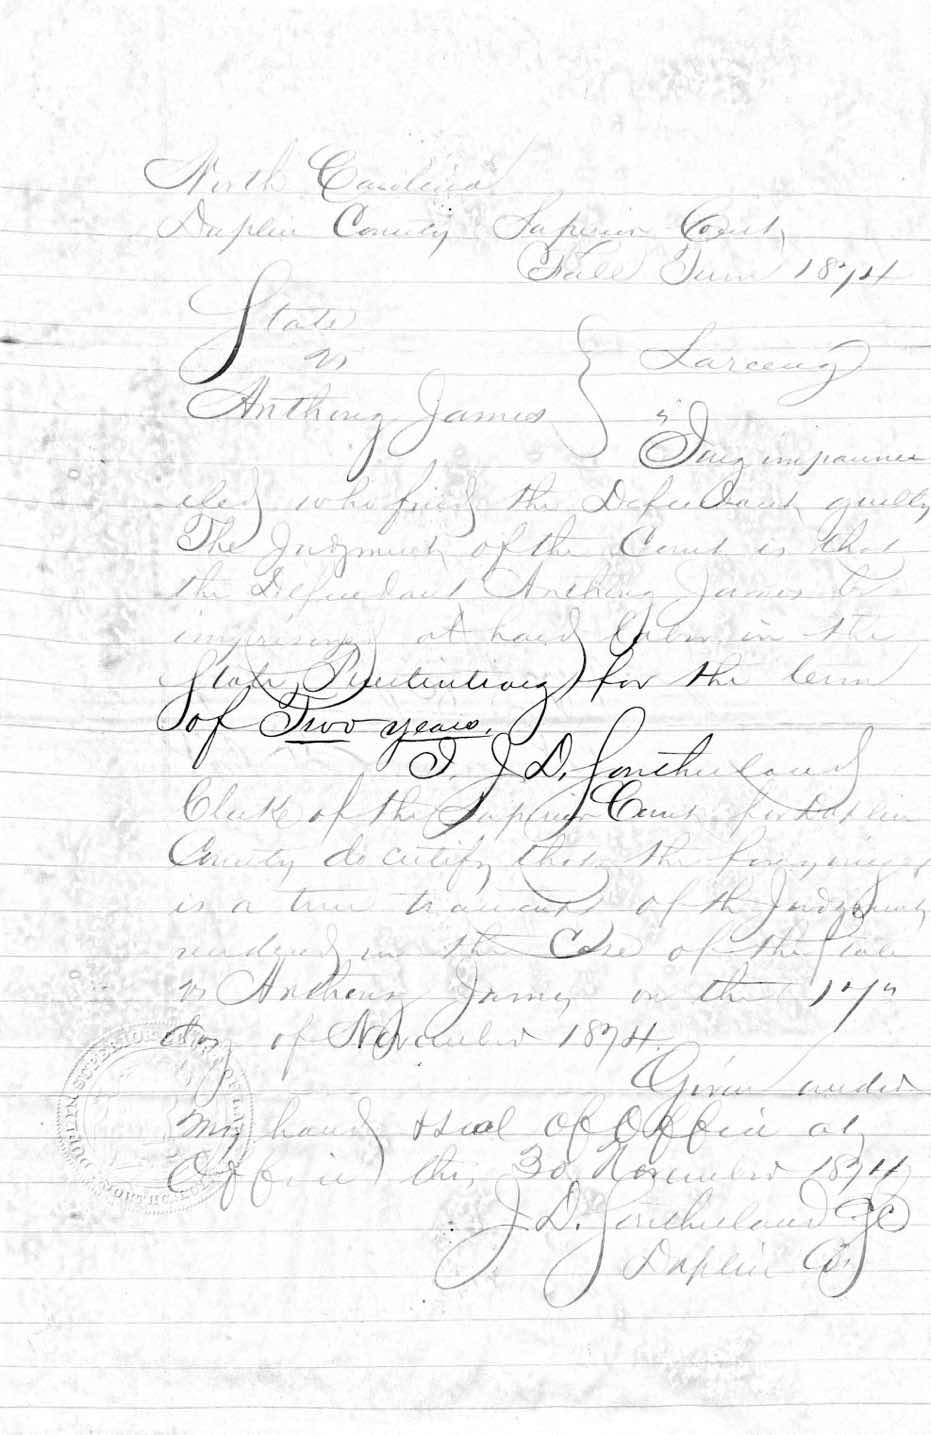 North Carolina
Duplin County Superior Court
Fall Term 1874
State
vs
Larceny
Anthony James
"Jury impanne
lled who find the Defendant guilty
The Judgment of the Court is that
the Defendant Anthony James be
imprisoned at hard labor in the
State Penitentiary for the term
of Two years.
I, J. D. Southerland
Clerk of the Superior Court for Duplin
County do certify that the foregoing
is a true transcript of the Judgment
rendered in the Case of the State
vs Anthony James on the 17th
day of November 1874.
Given under
my hand & seal of Office at
Office this 30 November 1874
J. D. Southerland
Duplin Co.
SUPERIOR COURT OF LAW
DUPLIN NORTH CAROLINA